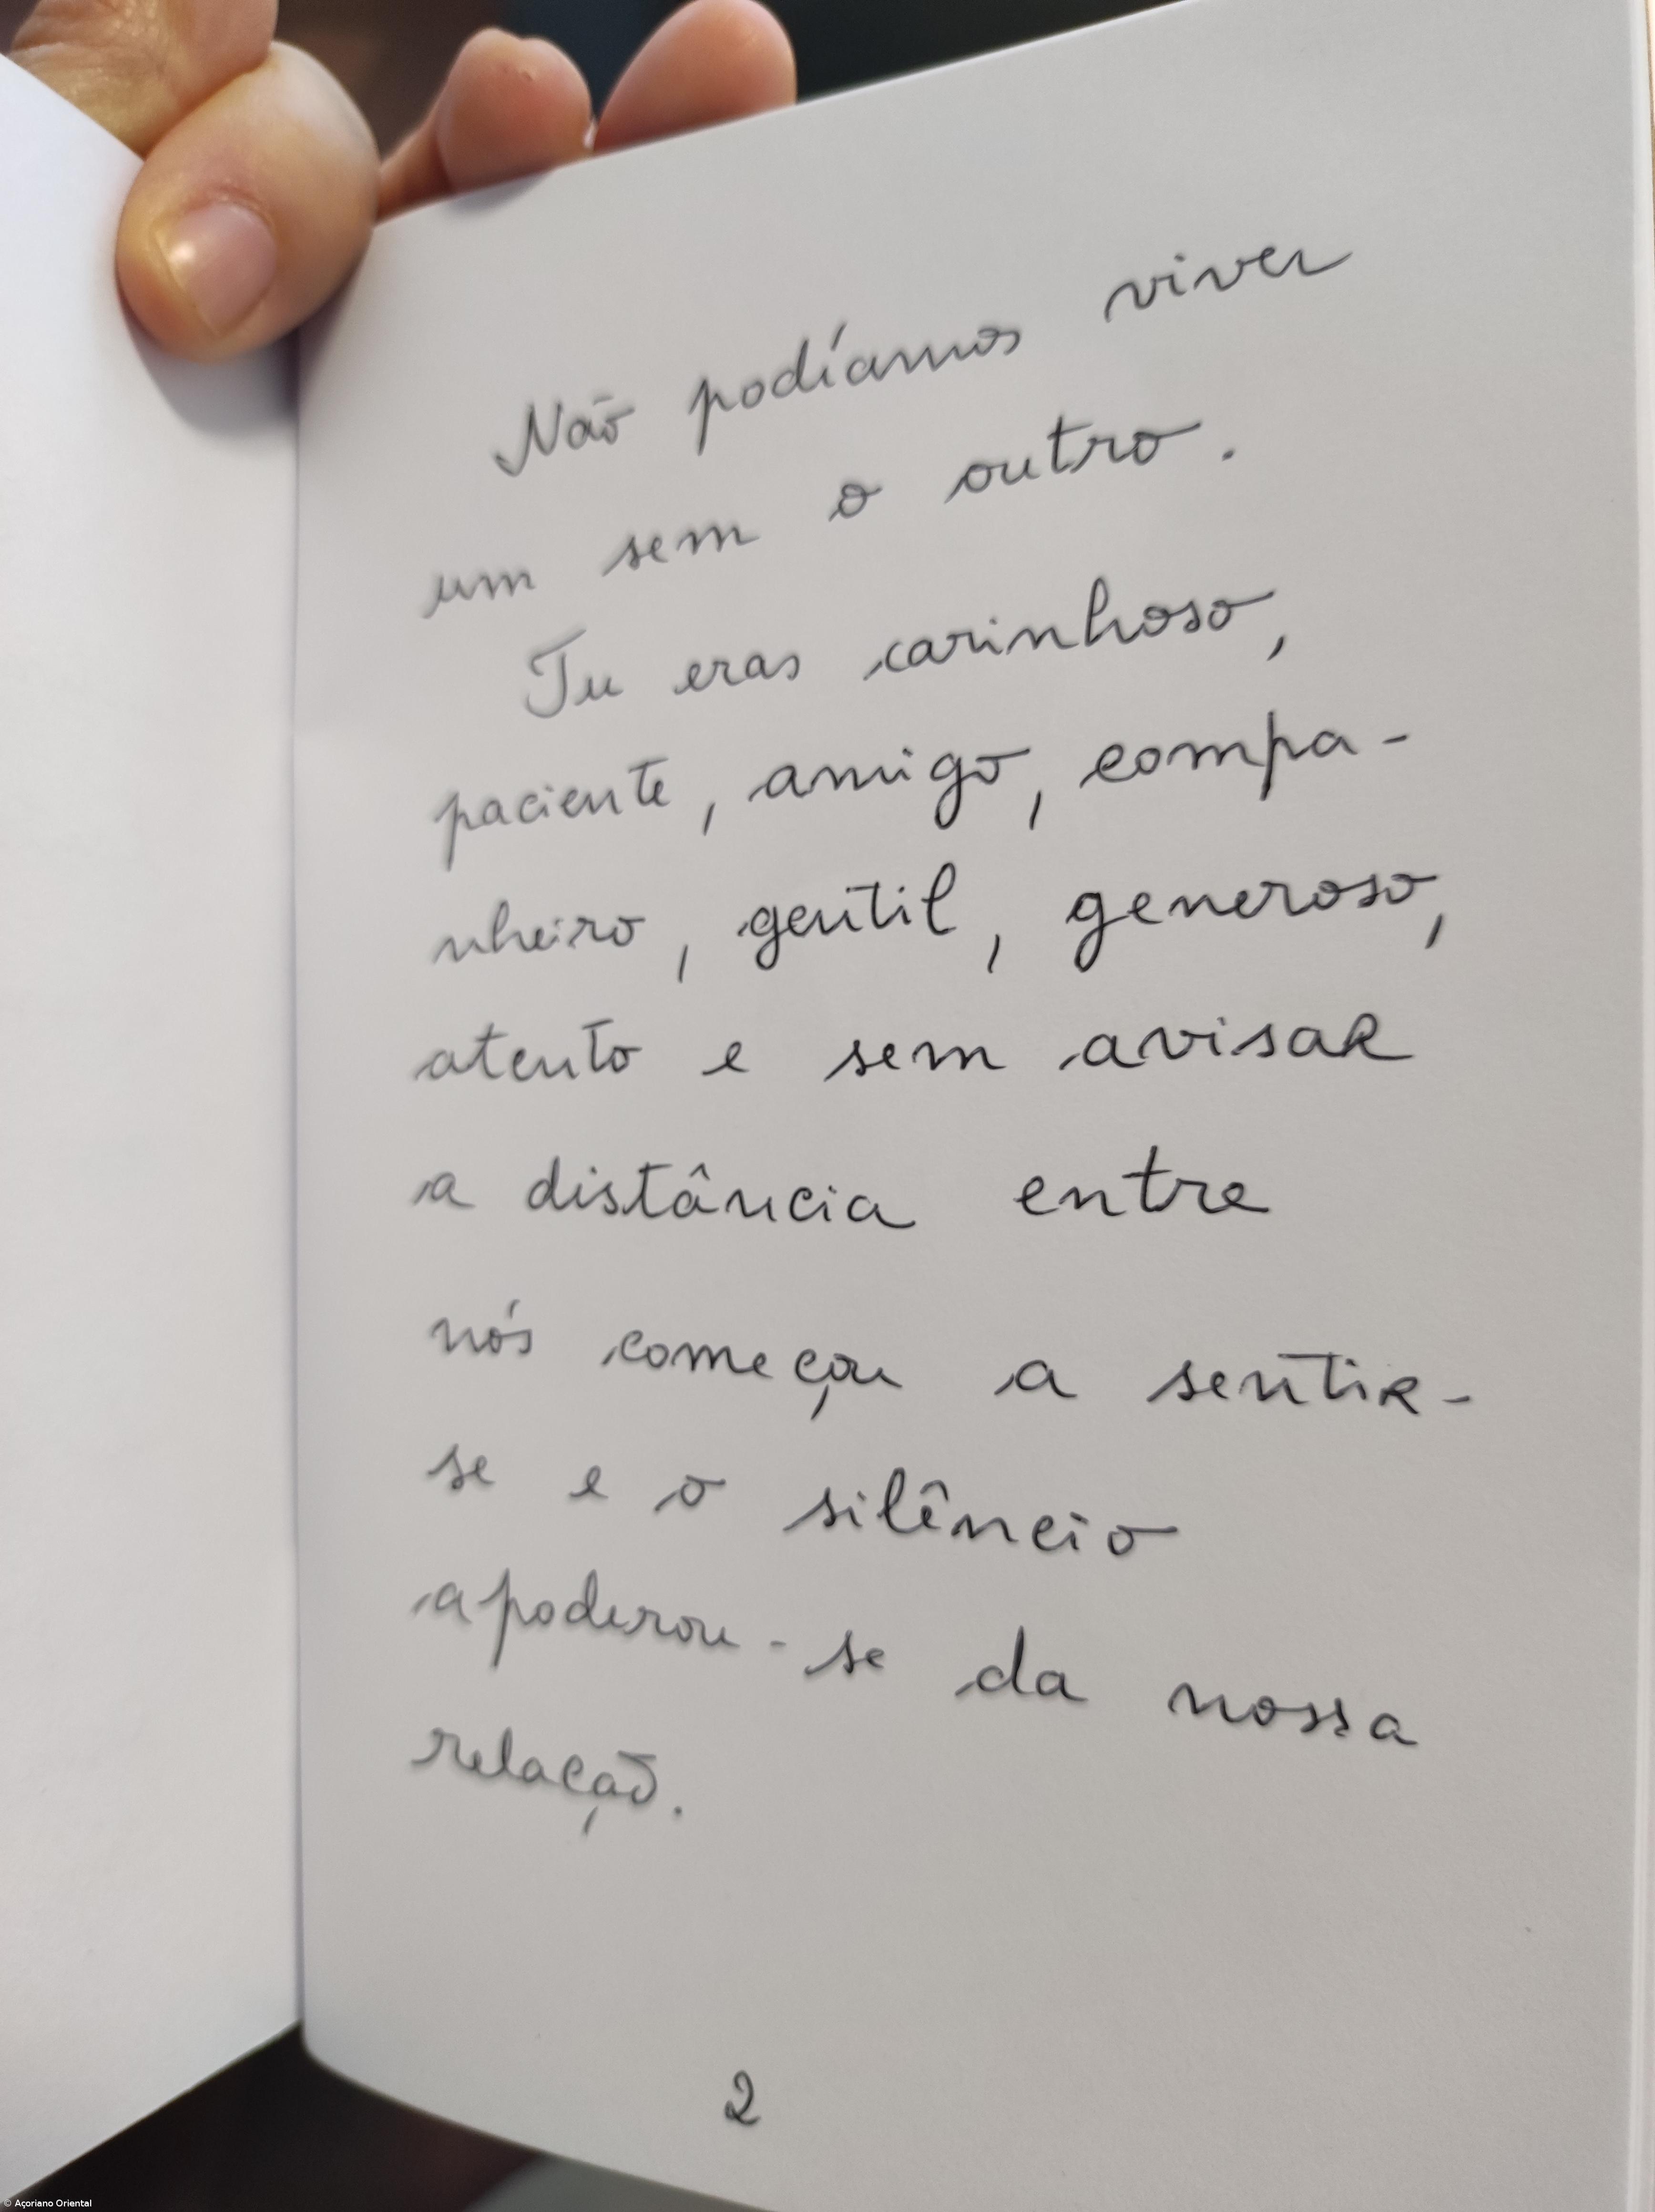 Não podíamos viver
um sem o outro.
Tu eras carinhoso,
paciente, amigo, compa-
nheiro, gentil, generoso,
atento e sem avisar
a distância entre
nós começou a sentir-
se e o silêncio
apoderou-se da nossa
relação.
2
© Açoriano Oriental